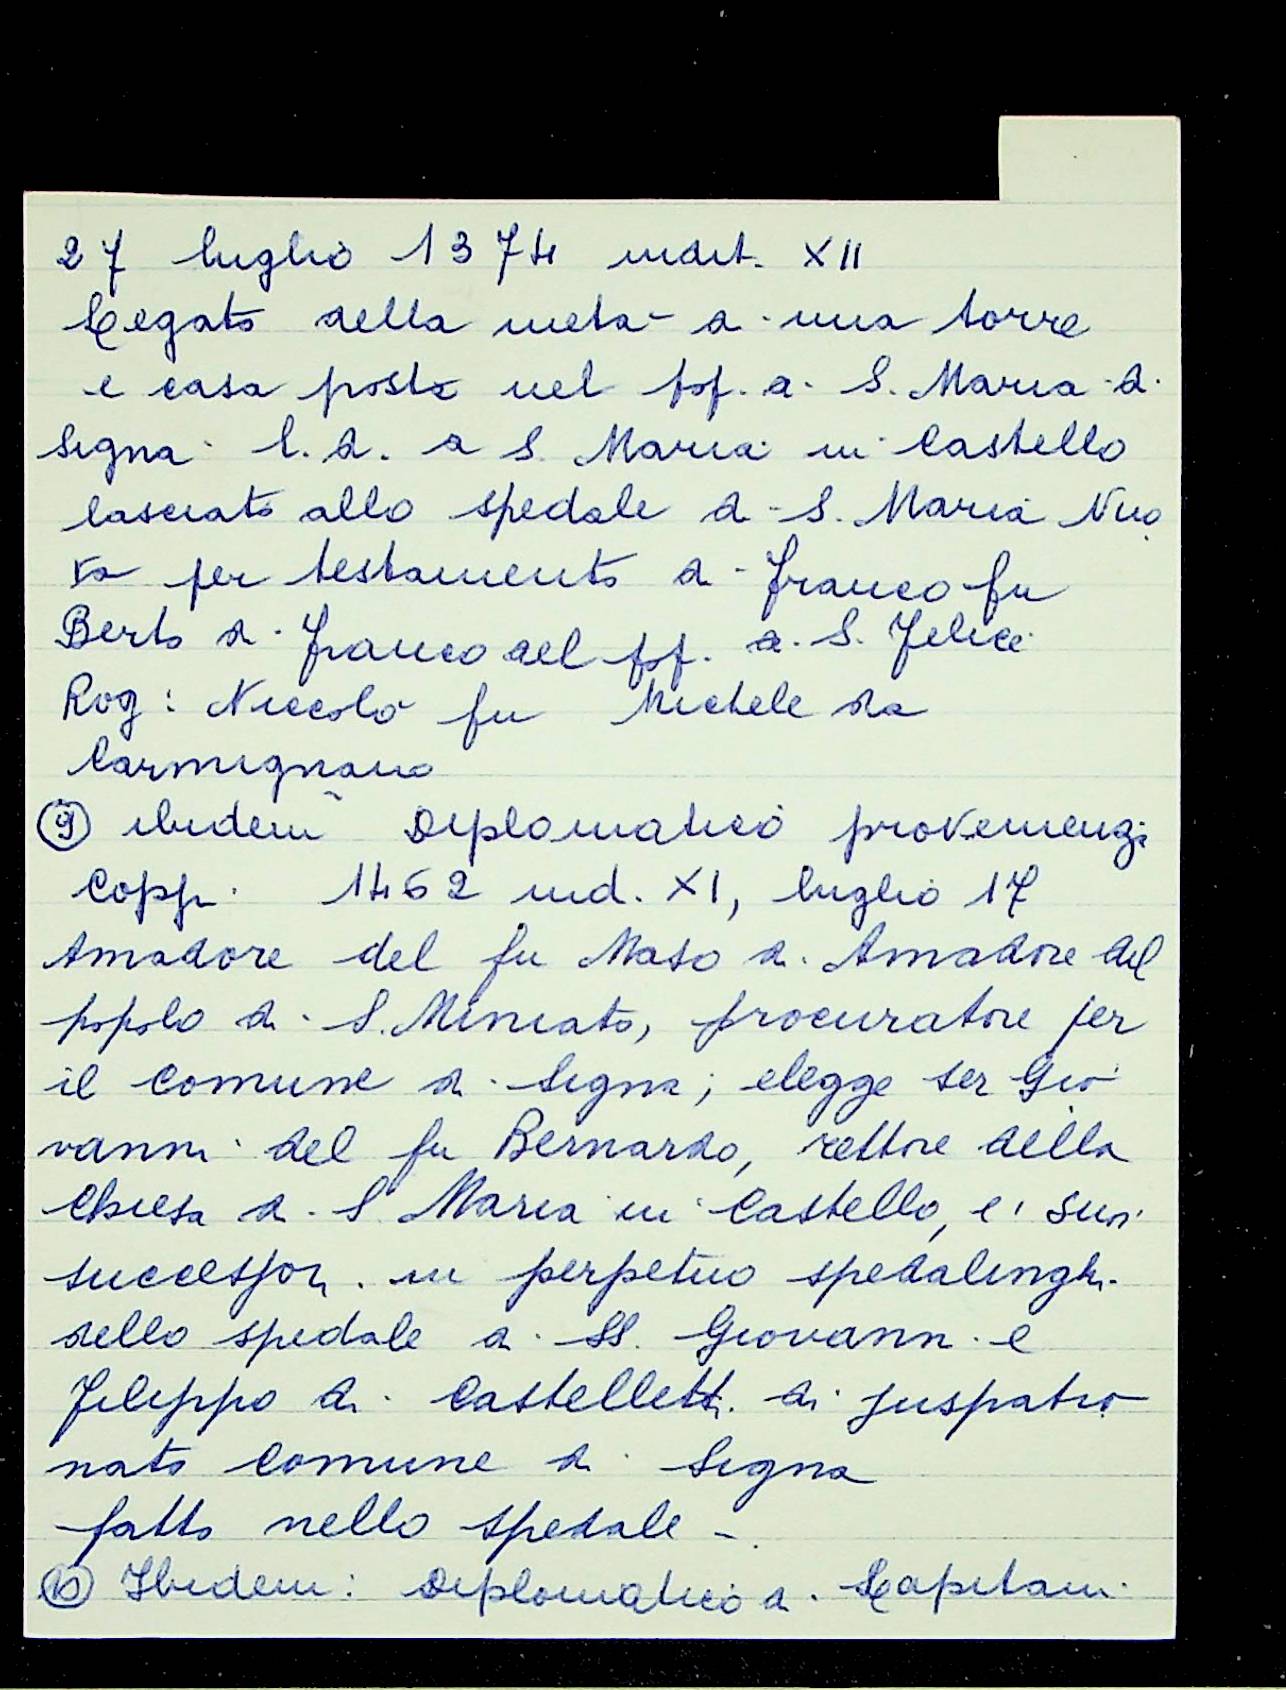 27 luglio 1374 indit. XII
Legato della metà di una torre
e casa posta nel pop. di S. Maria di
Signa l. d. a S. Maria in Castello
lasciato allo spedale di S. Maria Nuo
va per testamento di Franco fu
Berto di Franco del pop. di S. Felice
Rog: Niccolò fu Michele da
Carmignano
9 ibidem Diplomatico provenienzi
Copp. 1462 ind. XI, luglio 17
Amadore del fu Maso di Amadore del
popolo di S. Miniato, procuratore per
il comune di Signa; elegge ser Gio
vanni del fu Bernardo, rettore della
Chiesa di S Maria in Castello, e i suoi
successori in perpetuo spedalinghi
dello spedale di SS. Giovanni e
Filippo di Castelletti di juspatro
nato Comune di Signa
fatto nello spedale -
10 Ibidem: Diplomatico di Capitani